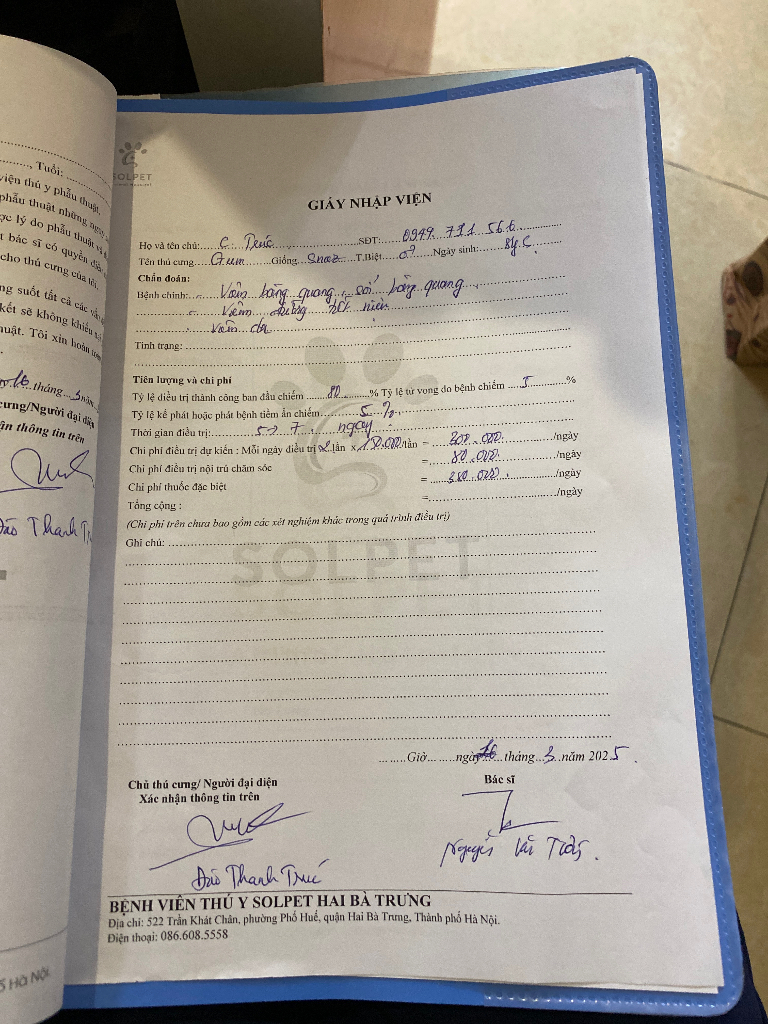 , Tuổi:
viện thú y phẫu thuật.
phẫu thuật những nguy
ợc lý do phẫu thuật và
t bác sĩ có quyền
cho thú cưng của tôi.
ng suốt tất cả các
kết sẽ không khiếu
uật. Tôi xin hoàn
16 tháng 3 năm
cưng/Người đại diện
ận thông tin trên
Đào Thanh
Hà Nội
SOLPET
GIẤY NHẬP VIỆN
Họ và tên chủ: C. Trúc SĐT: 0949. 731 566
Tên thú cưng Gum Giống Snaz T.Biệt ♂ Ngày sinh: 8y
Chẩn đoán:
Bệnh chính: - Viêm bàng quang, sỏi bàng quang
- Viêm đường tiết niệu
- Viêm da
Tình trạng:
Tiên lượng và chi phí
Tỷ lệ điều trị thành công ban đầu chiếm 80 % Tỷ lệ tử vong do bệnh chiếm 5 %
Tỷ lệ kế phát hoặc phát bệnh tiềm ẩn chiếm 5 %
Thời gian điều trị: 5 -> 7 ngày
Chi phí điều trị dự kiến : Mỗi ngày điều trị 2 lần x 150.000/lần = 300.000 /ngày
Chi phí điều trị nội trú chăm sóc = 80.000 /ngày
Chi phí thuốc đặc biệt = 380.000 /ngày
Tổng cộng : = /ngày
(Chi phí trên chưa bao gồm các xét nghiệm khác trong quá trình điều trị)
Ghi chú:
SOLPET
Giờ ngày 16 tháng 3 năm 2025
Chủ thú cưng/ Người đại diện Bác sĩ
Xác nhận thông tin trên
Đào Thanh Trúc Nguyễn
BỆNH VIÊN THÚ Y SOLPET HAI BÀ TRƯNG
Địa chỉ: 522 Trần Khát Chân, phường Phố Huế, quận Hai Bà Trưng, Thành phố Hà Nội.
Điện thoại: 086.608.5558